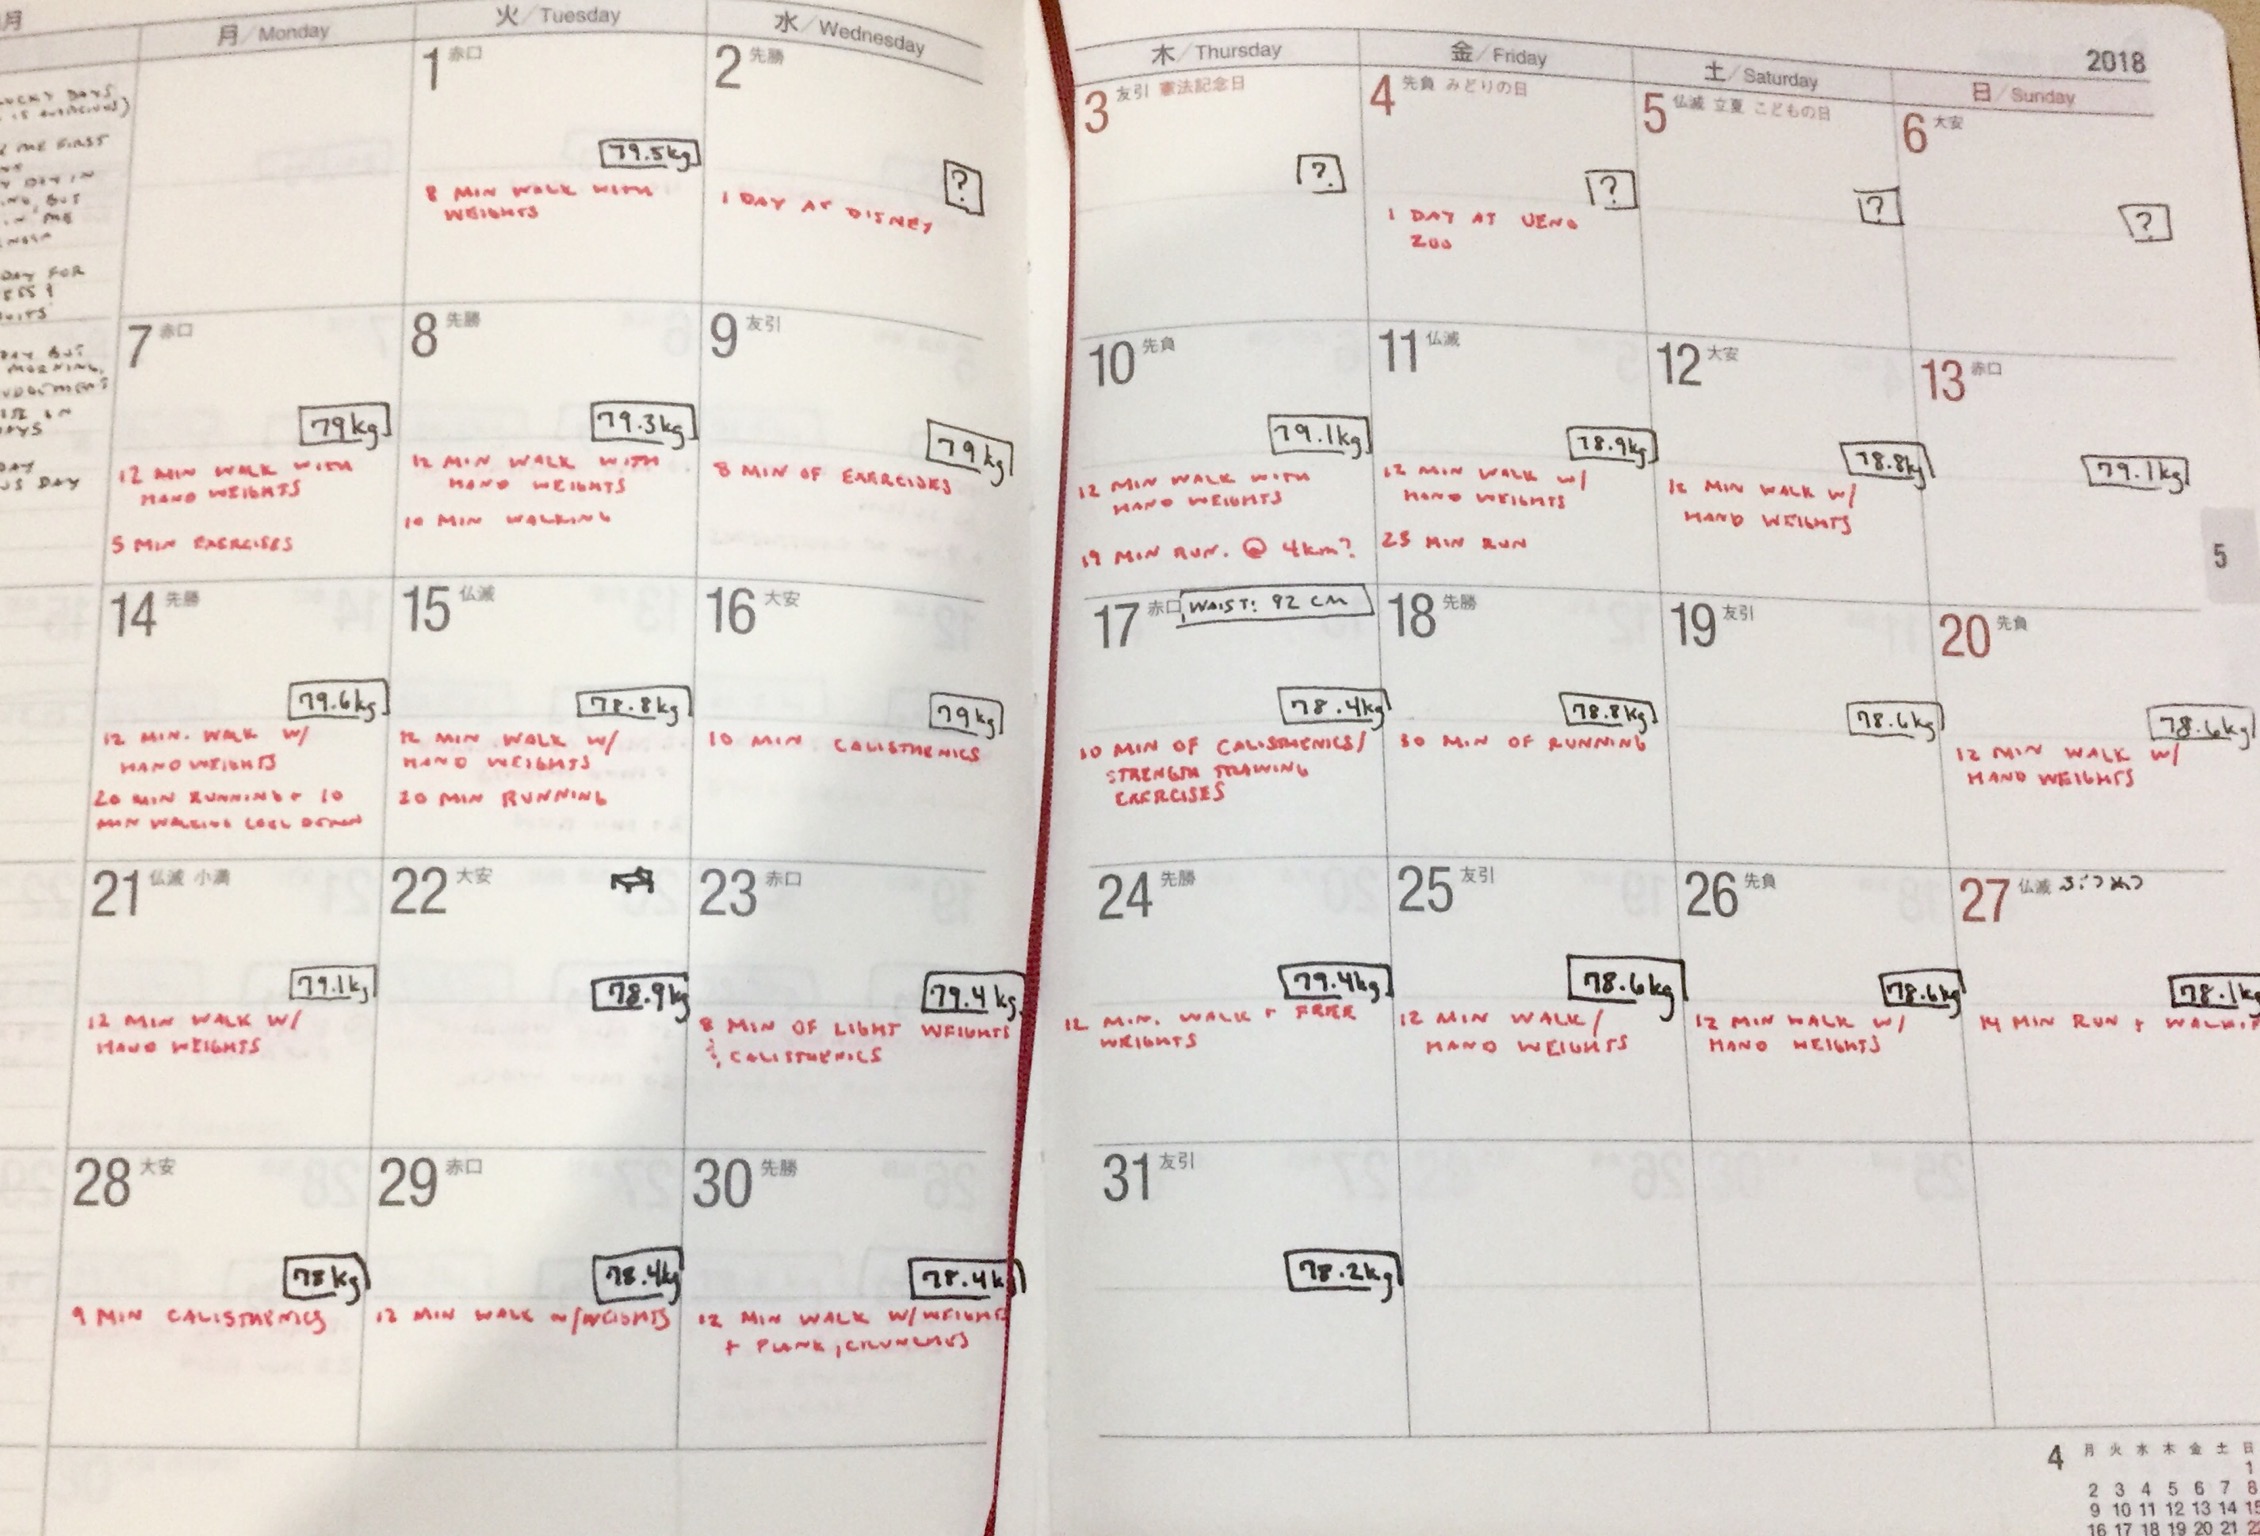 月
月/Monday
火/Tuesday
水/Wednesday
木/Thursday
金/Friday
土/Saturday
日/Sunday
2018
DAYS
ME FIRST
DAY IN
BUT
IN ME
DAY FOR
DAY BUT
MORNING,
IN
DAYS
DAY
DAY
1 赤口
79.5kg
8 MIN WALK WITH
WEIGHTS
2 先勝
?
1 DAY AT DISNEY
3 友引 憲法記念日
?
4 先負 みどりの日
?
1 DAY AT UENO
ZOO
5 仏滅 立夏 こどもの日
?
6 大安
?
7 赤口
79kg
12 MIN WALK WITH
HAND WEIGHTS
5 MIN EXERCISES
8 先勝
79.3kg
12 MIN WALK WITH
HAND WEIGHTS
10 MIN WALKING
9 友引
79kg
8 MIN OF EXERCISES
10 先負
79.1kg
12 MIN WALK WITH
HAND WEIGHTS
19 MIN RUN. @ 4km?
11 仏滅
78.9kg
12 MIN WALK W/
HAND WEIGHTS
25 MIN RUN
12 大安
78.8kg
12 MIN WALK W/
HAND WEIGHTS
13 赤口
79.1kg
5
14 先勝
79.6kg
12 MIN. WALK W/
HAND WEIGHTS
20 MIN RUNNING + 10
MIN WALKING COOL DOWN
15 仏滅
78.8kg
12 MIN WALK W/
HAND WEIGHTS
20 MIN RUNNING
16 大安
79kg
10 MIN CALISTHENICS
17 赤口 WAIST: 92 CM
78.4kg
10 MIN OF CALISTHENICS/
STRENGTH TRAINING
EXERCISES
18 先勝
78.8kg
30 MIN OF RUNNING
19 友引
78.6kg
20 先負
78.6kg
12 MIN WALK W/
HAND WEIGHTS
21 仏滅 小満
79.1kg
12 MIN WALK W/
HAND WEIGHTS
22 大安
78.9kg
23 赤口
79.4kg
8 MIN OF LIGHT WEIGHTS
& CALISTHENICS
24 先勝
79.4kg
12 MIN. WALK + FREE
WEIGHTS
25 友引
78.6kg
12 MIN WALK/
HAND WEIGHTS
26 先負
78.6kg
12 MIN WALK W/
HAND WEIGHTS
27 仏滅 ぶつめつ
78.1kg
14 MIN RUN +
28 大安
78kg
9 MIN CALISTHENICS
29 赤口
78.4kg
12 MIN WALK W/WEIGHTS
30 先勝
78.4kg
12 MIN WALK W/WEIGHTS
+ PLANK, CRUNCHES
31 友引
78.2kg
4 月 火 水 木 金 土 日
1
2 3 4 5 6 7 8
9 10 11 12 13 14 15
16 17 18 19 20 21 22